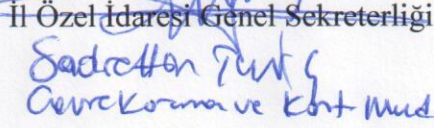 İl Özel İdaresi Genel Sekreterliği
Sadretton
Çevre Koruma ve Kont Müd